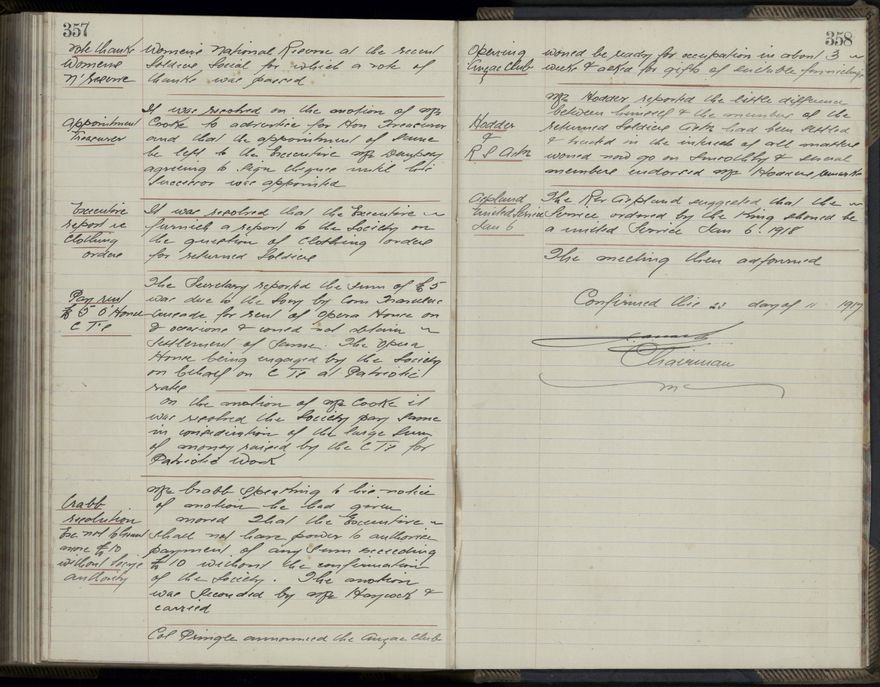 357
vote thanks
Womens
N' Reserve
Womens National Reserve at the recent
Soldiers Social for which a vote of
thanks was passed
Appointment
Treasurer
It was resolved on the motion of Mr
Cooke to advertise for Hon Treasurer
and that the appointment of same
be left to the Executive Mr
agreeing to sign cheques until his
Successor was appointed
Executive
report re
Clothing
orders
It was resolved that the Executive
furnish a report to the Society on
the question of Clothing orders
for returned Soldiers
Pay rent
£5 O' House
C T's
The Secretary reported the sum of £5
was due to the Socy by Com
for rent of Opera House on
occasions & could not obtain
Settlement of same. The Opera
House being engaged by the Society
on behalf on C Ts at Patriotic
rates
On the motion of Mr Cooke it
was resolved the Society pay same
in consideration of the large sum
of money raised by the C Ts for
Patriotic Work
Crabb
resolution
Exe not to
more £10
without Society
authority
Mr Crabb speaking to his notice
of motion he had given
moved That the Executive
shall not have power to authorise
payment of any sum exceeding
£10 without the confirmation
of the Society. The motion
was seconded by Mr Haycock &
carried
Col Pringle announced the Anzac Club
358
Opening
Anzac Club
would be ready for occupation in about 3
weeks & asked for gifts of suitable furnishings
Hodder
&
R S Assn
Mr Hodder reported the little difference
between himself & the members of the
returned Soldiers Assn had been settled
& trusted in the interests of all matters
would now go on smoothly & several
members endorsed Mr Hodders remarks
Copland
United Service
Jan 6
The Rev Copland suggested that the
Service ordered by the King should be
a united Service Jan 6. 1918
The meeting then adjourned
Confirmed this 23 day of 11 1917
Chairman